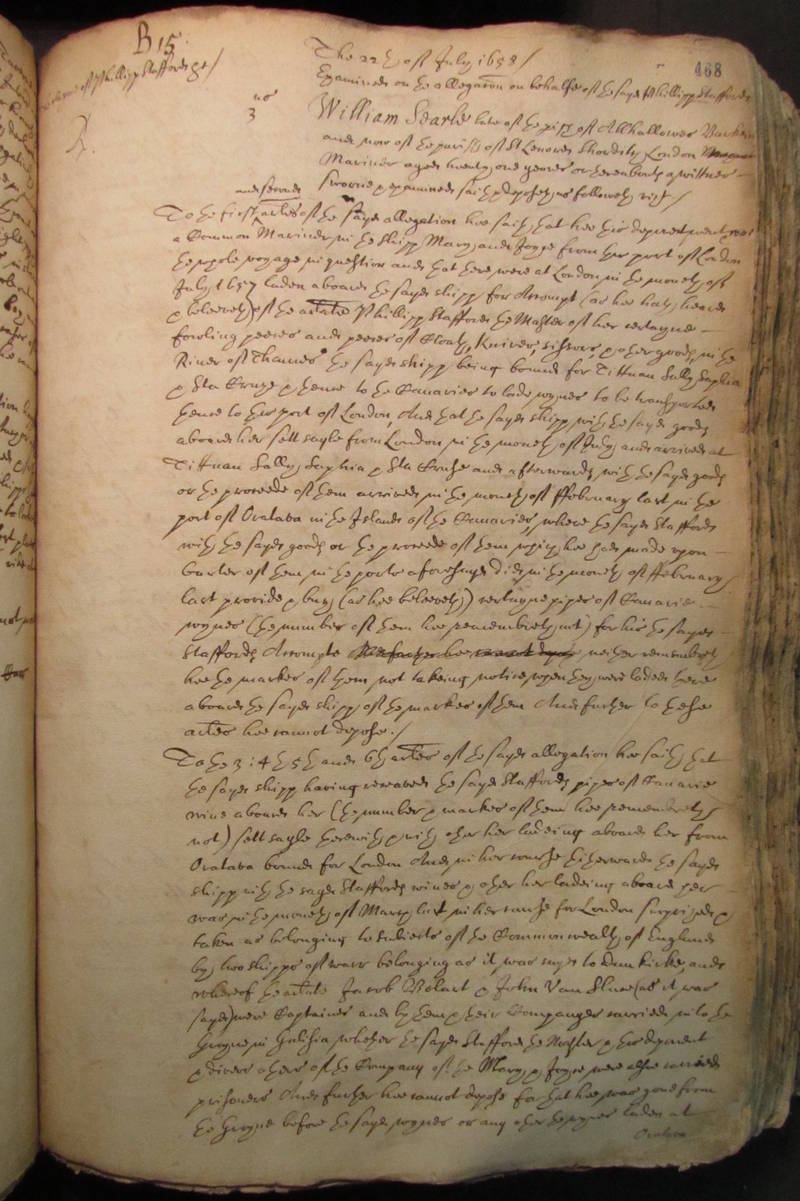 B 15
468
The 22th of July 1658 /
Examined on the allegation on behalfe of the sayd Phillipp Stafford
of Phillipp Stafford &c /
us
3
William Searle late of the parish of Allhallowes Barkin
and now of the parish of St Leonards Shorditch London
Mariner aged twenty one yeares or thereabouts a wittnes
sworne & examined saith & deposeth as followeth vizt /
and second
To the first artles of the sayd allegation hee saith that hee this deponent went
a Common Mariner in the shipp Mary and Joyce from the port of London
the whole voyage in question and that there were at London in the moneth of
July 1657 laden aboard the sayd shipp for Accompt (as hee hath heard
& beleeveth) of the arlate Phillipp Stafford the Master of her certayne
fowling peeces and peeces of Cloath, Knives, sissors, & other goods, in the
River of Thames the sayd shipp being bound for Tittuan Sally Saphia
& Sta Cruze & thence to the Canaries to lade wynes to be transported
thence to this port of London, And that the sayd shipp with the sayd goods
aboard her sett sayle from London in the moneth of July and arrived at
Tittuan Sally, Saphia & Sta Cruse and afterwards with the sayd goods
or the proceede of them arrived in the moneth of ffebruary last in the
port of Oratava in the Islands of the Canaries, where the sayd Stafford
with the sayd goods or the proceede of them which hee had made upon
barter of them in the ports aforesayd did in the moneth of ffebruary
last provide & buy (as hee beleeveth) certayne pipes of Canarie
wynes (the number of them hee remembreth not) for his the sayd
Staffords Accompte neither remembreth
hee the markes of them not taking notice when they were laden there
aboard the sayd shipp of the markes of them And further to these
artles hee cannot depose. /
To the 3 : 4th 5th and 6th artles of the sayd allegation hee saith that
the sayd shipp having receaved the sayd Staffords pipes of Canarie
wine aboard her (the number & markes of them hee remembreth
not) sett sayle therewith & with other her ladeing aboard her from
Oratava bound for London And in her course hitherwards the sayd
shipp with the sayd Staffords wines & other her ladeing aboard her
was in the moneth of March last in her course for London surprized &
taken as belonging to subiects of the Commonwealth of England
by two shipps of warr belonging as it was sayd to Dunkirke, and
whereof the arlate Jacob Bolart & John Van Sluce (as it was
sayd) were Captaines and by them & their Companyes carried into the
Groyne in Galisia whether the sayd Stafford the Master & this deponent
& divers others of the Company of the Mary & Joyce were alsoe carried
prisoners And further hee cannot depose for that hee was gone from
the Groyne before the sayd wynes or any other the wynes laden at
Oratava